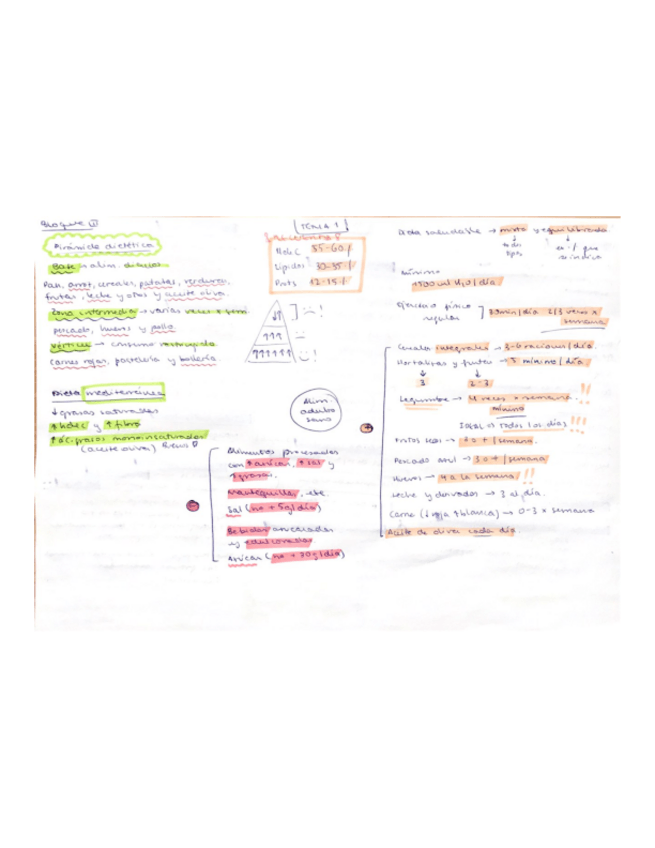 Bloque II
TEMA 1
Pirámide dietética
Base → alim. diarios
Pan, arroz, cereales, patatas, verduras,
frutas, leche y otros y aceite oliva.
Zona intermedia → varias veces x sem.
pescado, huevos y pollo
Vértice → consumo restringido.
carnes rojas, pastelería y bollería.
Dieta mediterránea
↓ grasas saturadas
↑ hdec y ↑ fibra
↑ ác. grasos monoinsaturados
(aceite oliva)
Hde C 55-60%
Lípidos 30-35%
Prots 12-15%
Alim
sano
Alimentos procesados
con ↑ azúcar, ↑ sal y
↑ grasas.
Mantequilla, etc
Sal (no + 5g/día)
Bebidas azucaradas
y edulcoradas
Azúcar (no + 30g/día)
Dieta saludable → mixta y equilibrada
↓ de todos tipos
↓ en % que se indica
Mínimo
1500 ml H₂O/día
Ejercicio físico regular ] 30min/día 2/3 veces x semana
Cereales integrales → 3-6 raciones/día.
Hortalizas y frutas → 5 mínimo/día
3 2-3
Legumbre → 4 veces x semana !!
mínimo
Ideal → todos los días !!!
Frutos secos → + o + /semana.
Pescado azul → 3 o + /semana
Huevos → 4 a la semana !!
Leche y derivados → 3 al día.
Carne (↓ roja ↑ blanca) → 0-3 x semana
Aceite de oliva cada día.